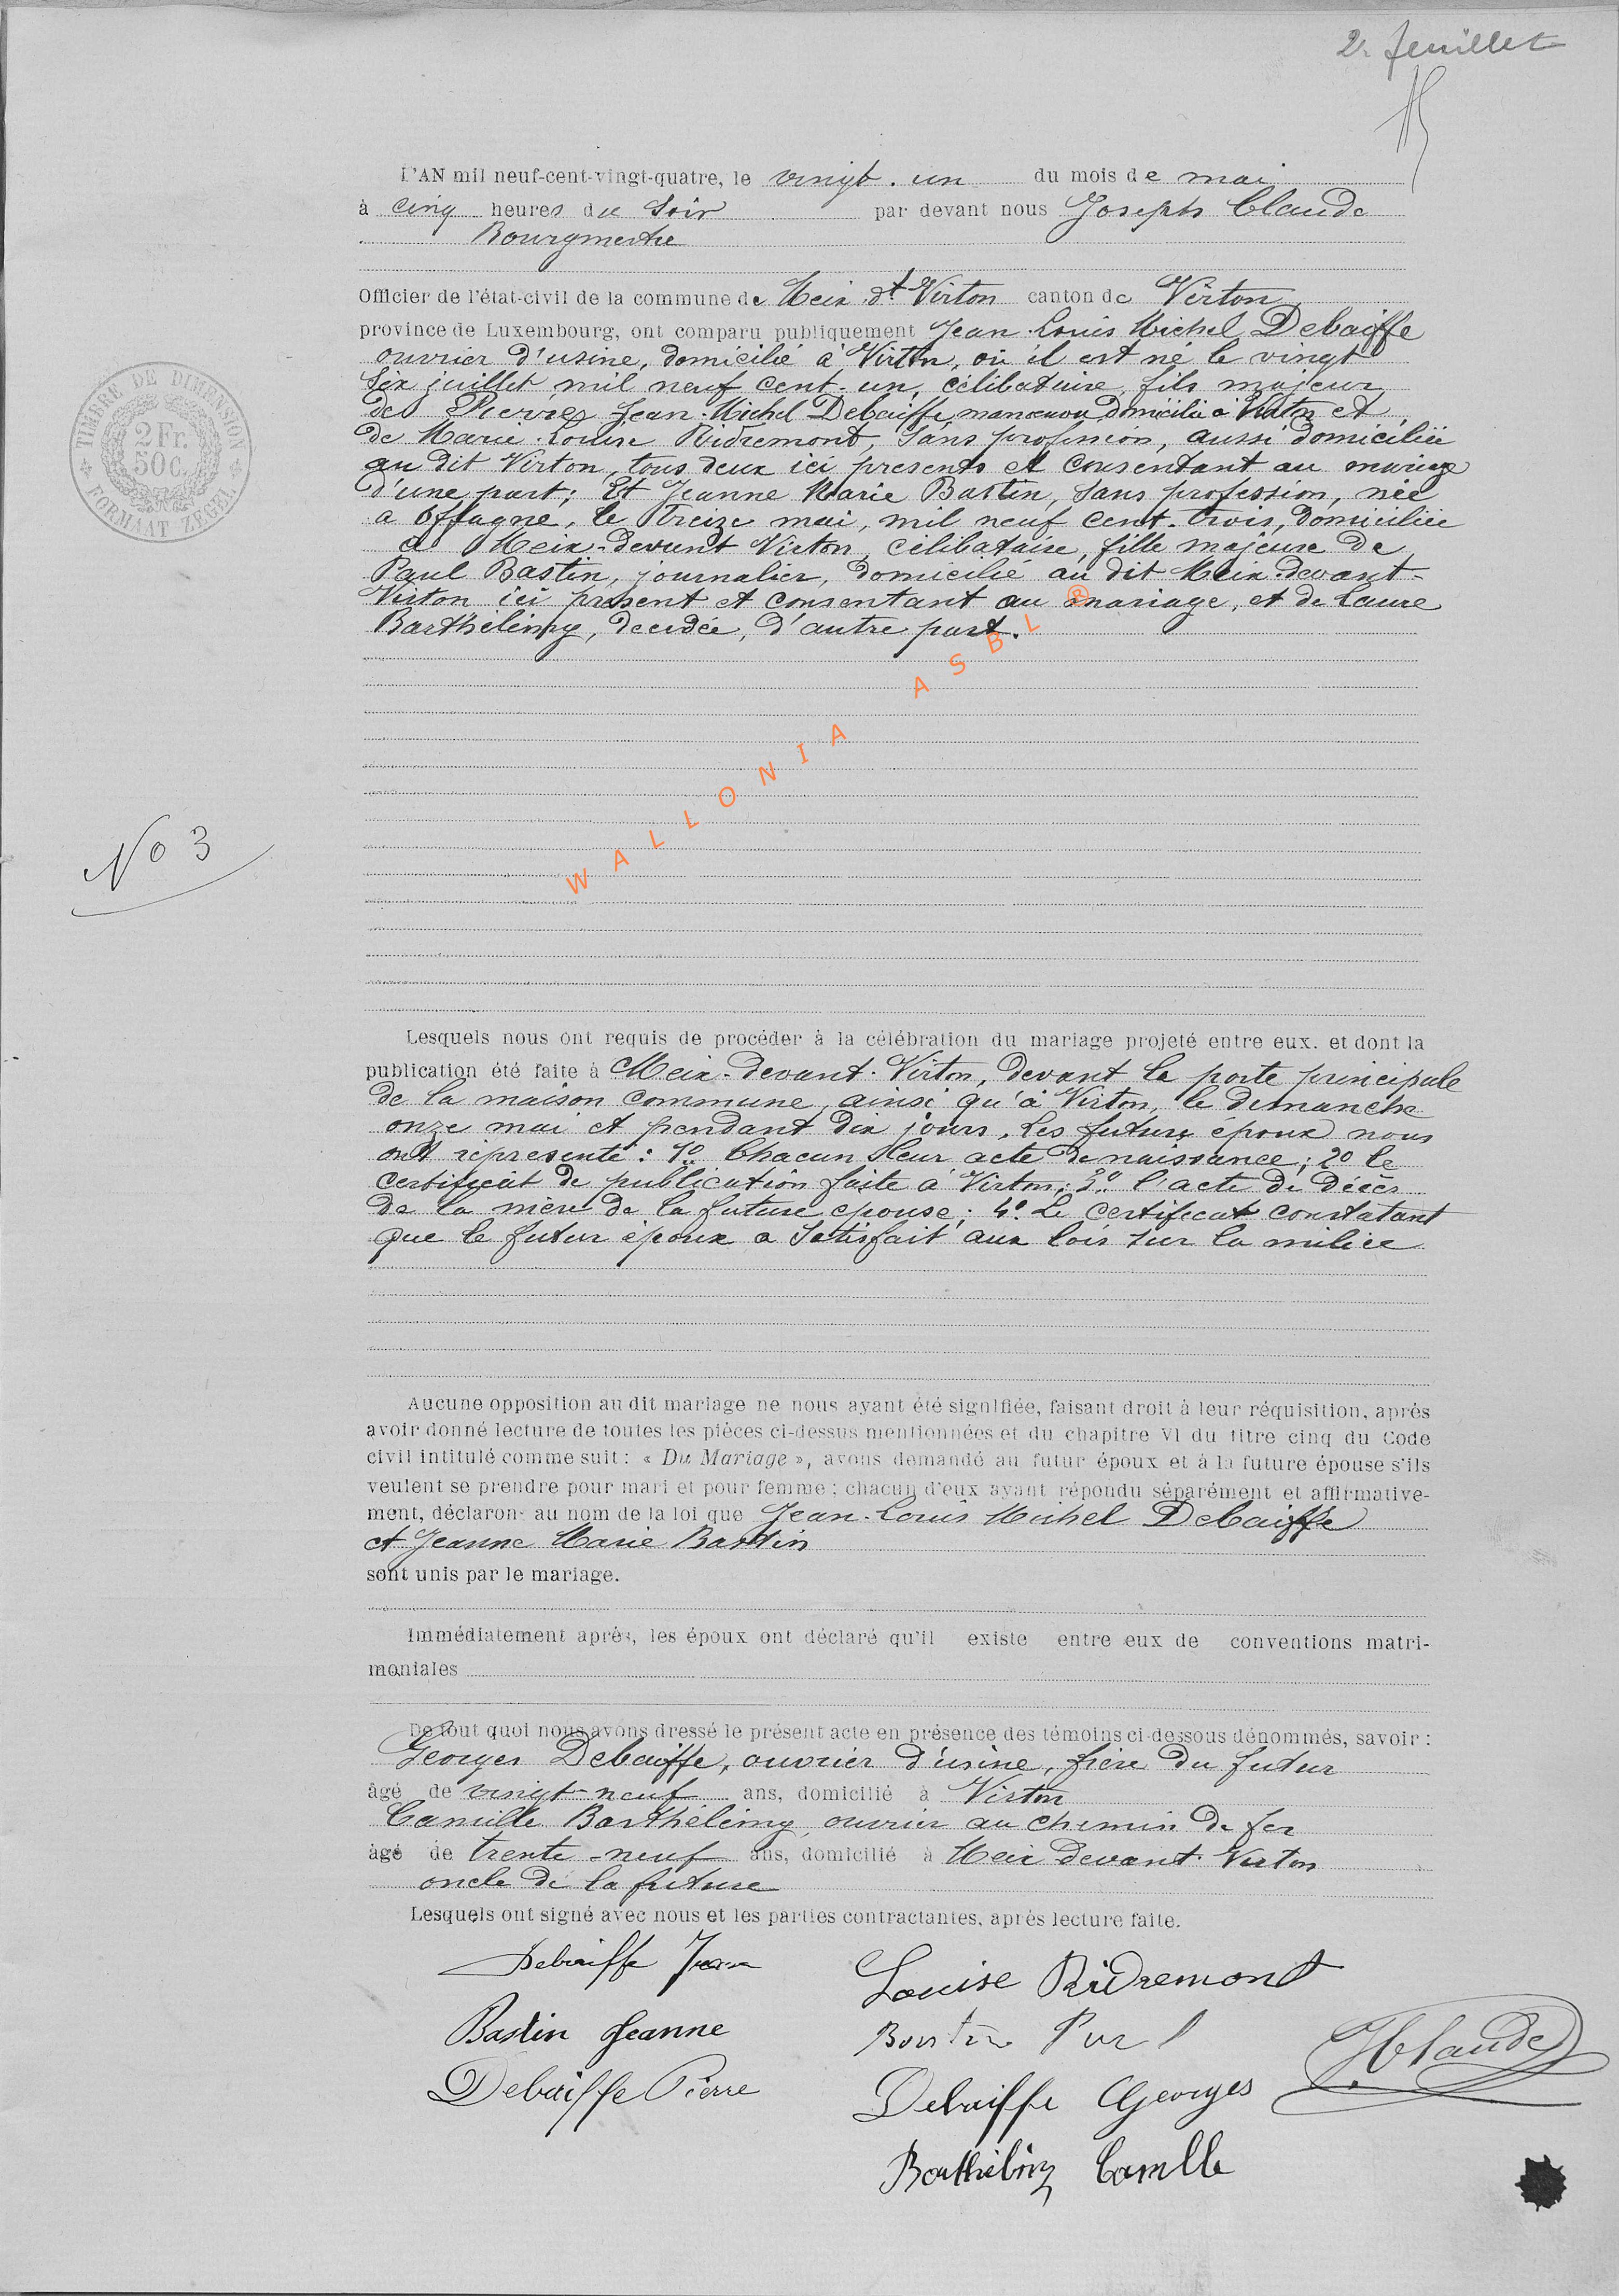 2e feuillet
TIMBRE DE DIMENSION
2 Fr.
50 C.
FORMAAT ZEGEL
L'AN mil neuf-cent-vingt-quatre, le vingt-un du mois de mai
à cinq heures du soir par devant nous Joseph Claude
Bourgmestre
Officier de l'état-civil de la commune de Meix dt Virton canton de Virton
province de Luxembourg, ont comparu publiquement Jean-Louis Michel Debaiffe
ouvrier d'usine, domicilié à Virton, où il est né le vingt
six juillet mil neuf cent-un, célibataire, fils majeur
de Pierre Jean-Michel Debaiffe, manoeuvre domicilié à Virton et
de Marie-Louise Ridremont, sans profession, aussi domiciliée
au dit Virton, tous deux ici présents et consentant au mariage
d'une part; Et Jeanne Marie Bastin, sans profession, née
à Offagne, le treize mai, mil neuf cent-trois, domiciliée
à Meix-devant Virton, célibataire, fille majeure de
Paul Bastin, journalier, domicilié au dit Meix-devant-
Virton ici présent et consentant au mariage, et de Laure
Barthélémy, décédée, d'autre part.
WALLONIA ASBL ®
No 3
Lesquels nous ont requis de procéder à la célébration du mariage projeté entre eux. et dont la
publication été faite à Meix-devant-Virton, devant la porte principale
de la maison commune, ainsi qu'à Virton, le dimanche
onze mai et pendant dix jours. Les futurs époux nous
ont représenté : 1º Chacun leur acte de naissance; 2º le
certificat de publication faite à Virton; 3º l'acte de décès
de la mère de la future épouse; 4º Le certificat constatant
que le futur époux a satisfait aux lois sur la milice
Aucune opposition au dit mariage ne nous ayant été signifiée, faisant droit à leur réquisition, après
avoir donné lecture de toutes les pièces ci-dessus mentionnées et du chapitre VI du titre cinq du Code
civil intitulé comme suit : « Du Mariage », avons demandé au futur époux et à la future épouse s'ils
veulent se prendre pour mari et pour femme : chacun d'eux ayant répondu séparément et affirmative-
ment, déclaron- au nom de la loi que Jean-Louis Michel Debaiffe
et Jeanne Marie Bastin
sont unis par le mariage.
Immédiatement après, les époux ont déclaré qu'il existe entre eux de conventions matri-
moniales
De tout quoi nous avons dressé le présent acte en présence des témoins ci-dessous dénommés, savoir :
Georges Debaiffe, ouvrier d'usine, frère du futur
âgé de vingt-neuf ans, domicilié à Virton
Camille Barthélémy, ouvrier au chemin de fer
âgé de trente-neuf ans, domicilié à Meix devant-Virton
oncle de la future
Lesquels ont signé avec nous et les parties contractantes, après lecture faite.
Debaiffe Jean
Louise Ridremont
Bastin Jeanne
Bastin Paul
JClaude
Debaiffe Pierre
Debaiffe Georges
Barthélémy Camille